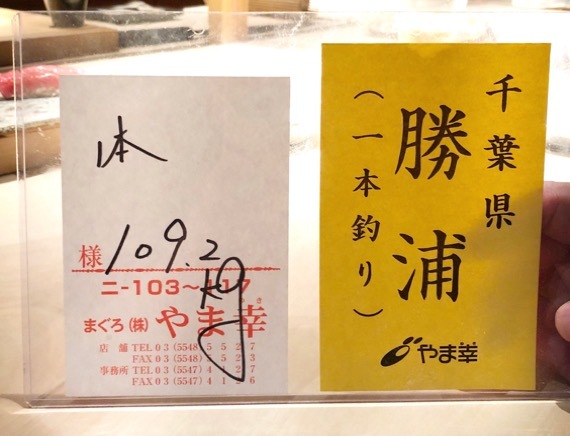 本
109.2 kg
様
ニ-103～117
まぐろ(株)やま幸
店舗 TEL 03(5548)5527
FAX 03(5548)5523
事務所 TEL 03(5547)4127
FAX 03(5547)4126
千葉県
勝浦
(一本釣り)
やま幸